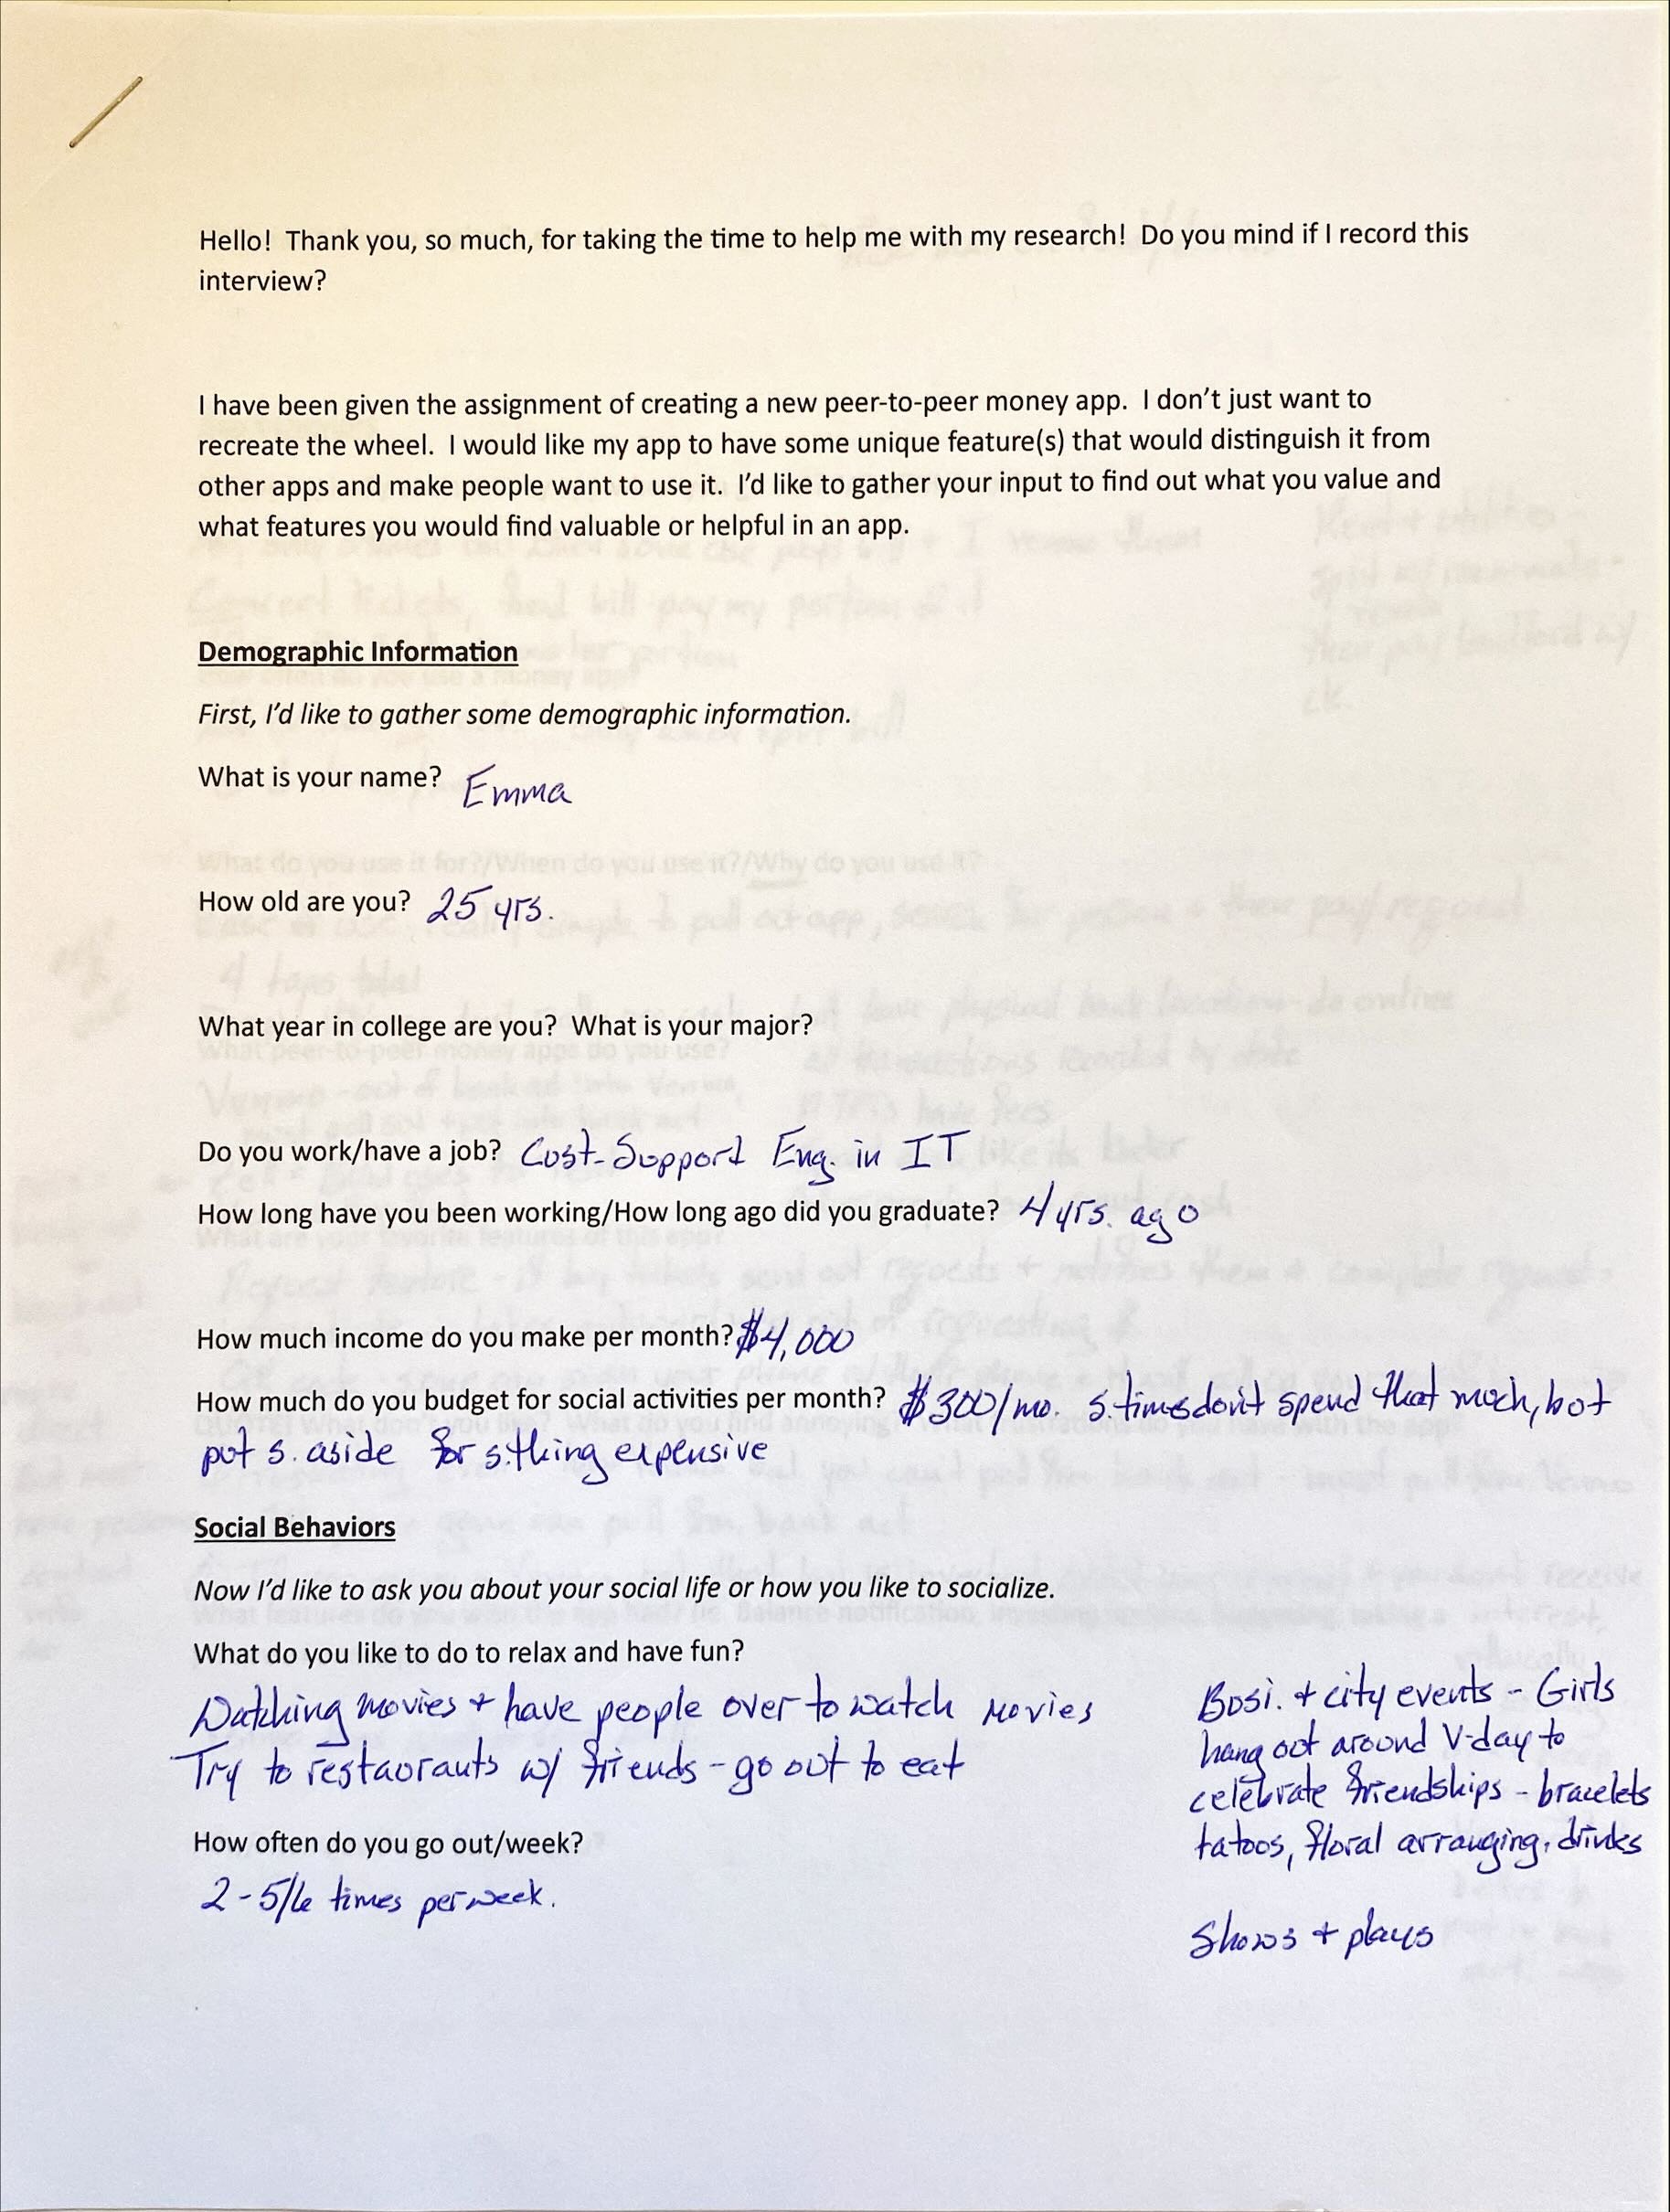 Hello!  Thank you, so much, for taking the time to help me with my research!  Do you mind if I record this
interview?
I have been given the assignment of creating a new peer-to-peer money app.  I don't just want to
recreate the wheel.  I would like my app to have some unique feature(s) that would distinguish it from
other apps and make people want to use it.  I'd like to gather your input to find out what you value and
what features you would find valuable or helpful in an app.
Demographic Information
First, I'd like to gather some demographic information.
What is your name? Emma
How old are you? 25 yrs.
What year in college are you?  What is your major?
Do you work/have a job? Cust-Support Eng. in IT
How long have you been working/How long ago did you graduate? 4 yrs. ago
How much income do you make per month? $4,000
How much do you budget for social activities per month? $300/mo. s.times don't spend that much, but
put s. aside for s.thing expensive
Social Behaviors
Now I'd like to ask you about your social life or how you like to socialize.
What do you like to do to relax and have fun?
Watching movies + have people over to watch movies
Try to restaurants w/ friends - go out to eat
How often do you go out/week?
2-5/6 times per week.
Busi. + city events - Girls
hang out around V-day to
celebrate friendships - bracelets
tatoos, floral arranging, drinks
Shows + plays